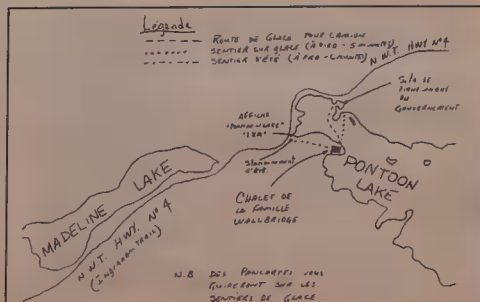 Légende
ROUTE DE GLACE POUR CAMION
SENTIER SUR GLACE (À PIED - 5 MINUTES)
SENTIER D'ÉTÉ (À PIED -
N.W.T. HWY Nº 4
SITE DE
PIQUE-NIQUE
DU
GOUVERNEMENT
AFFICHE
"PONTOON LAKE"
STATIONNEMENT
D'ÉTÉ
PONTOON
LAKE
CHALET DE
LA FAMILLE
WALLBRIDGE
MADELINE LAKE
N.W.T. HWY. Nº 4
(INGRAHAM TRAIL)
N.B. DES PANCARTES VOUS
GUIDERONT SUR LES
SENTIERS DE GLACE.